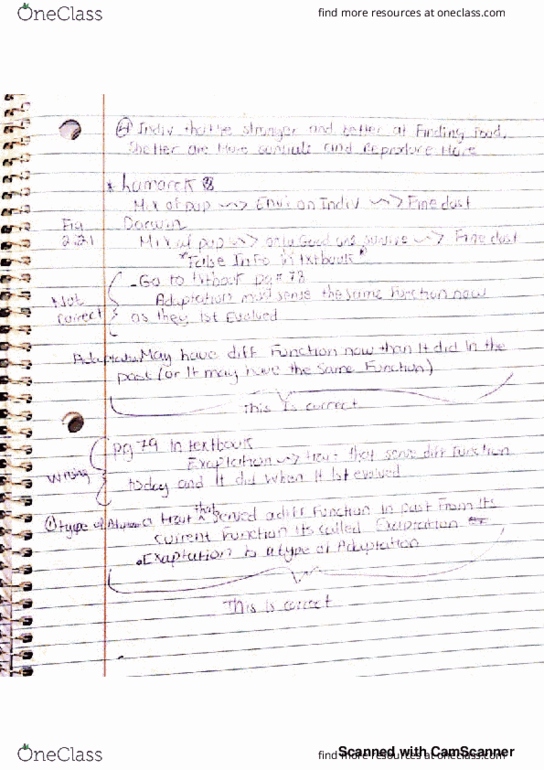 OneClass
find more resources at oneclass.com
④ Indiv that're stronger and better at Finding Food,
Shelter are More and Reproduce More
* Lamarck
Mix of pup ~> Envi on Indiv ~> Fine dust
Fig 2.21
Darwin
Mix of pup ~> only Good ones survive ~> Fine dust
"False InFo in txtbook"
- Go to txtbook pg # 78
Not correct
Adaptation must serve the same Function now
as they 1st Evolved
May have diff Function now than It did In the
past (or It may have the Same Function)
This Is correct
pg 79 In textbook
wrong
Exaptation ~> trait that serve diff function
today and It did when It 1st evolved
① type of a trait that served a diff Function in past From its
current Function its called Exaptation
• Exaptation is a type of Adaptation
This is correct
OneClass
find more resources at oneclass.com
Scanned with CamScanner